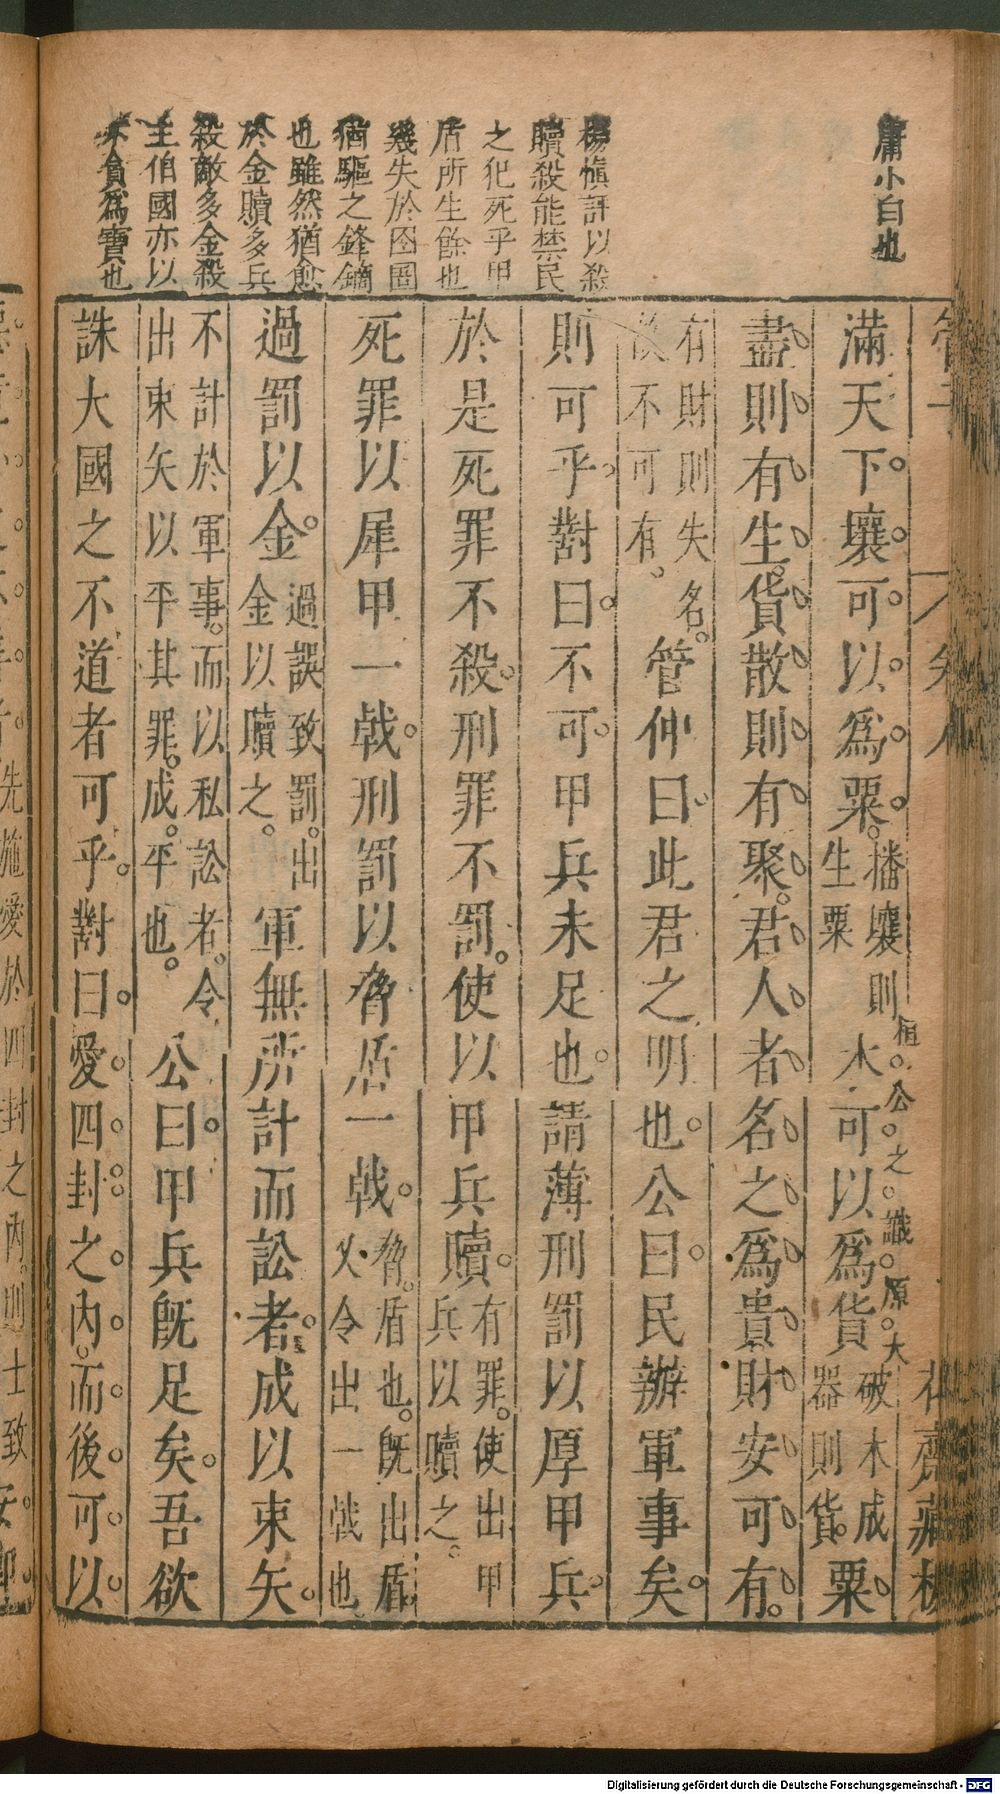 庸小白也
楊慎評以殺
贖殺能禁民
之犯死乎甲
盾所生餘也
幾失於囹圄
猶驅之鋒鏑
也雖然猶愈
於金贖多兵
殺敵多金殺
主伯國亦以
不貪爲寶也
桓公之識原大
滿天下壤可以爲粟播壤則生粟木可以爲貨破木成器則貨粟
盡則有生貨散則有聚君人者名之爲貴財安可有
有財則失名故不可有管仲曰此君之明也公曰民辦軍事矣
則可乎對曰不可甲兵未足也請薄刑罰以厚甲兵
於是死罪不殺刑罪不罰使以甲兵贖有罪使出甲兵以贖之
死罪以犀甲一戟刑罰以脅盾一戟脅盾也旣出盾又令出一戟也
過罰以金過誤致罰出金以贖之軍無所計而訟者成以束矢
不計於軍事而以私訟者令出束矢以平其罪成平也公曰甲兵旣足矣吾欲
誅大國之不道者可乎對曰愛四封之內而後可以
先施愛於四封之內則士致
Digitalisierung gefördert durch die Deutsche Forschungsgemeinschaft - DFG